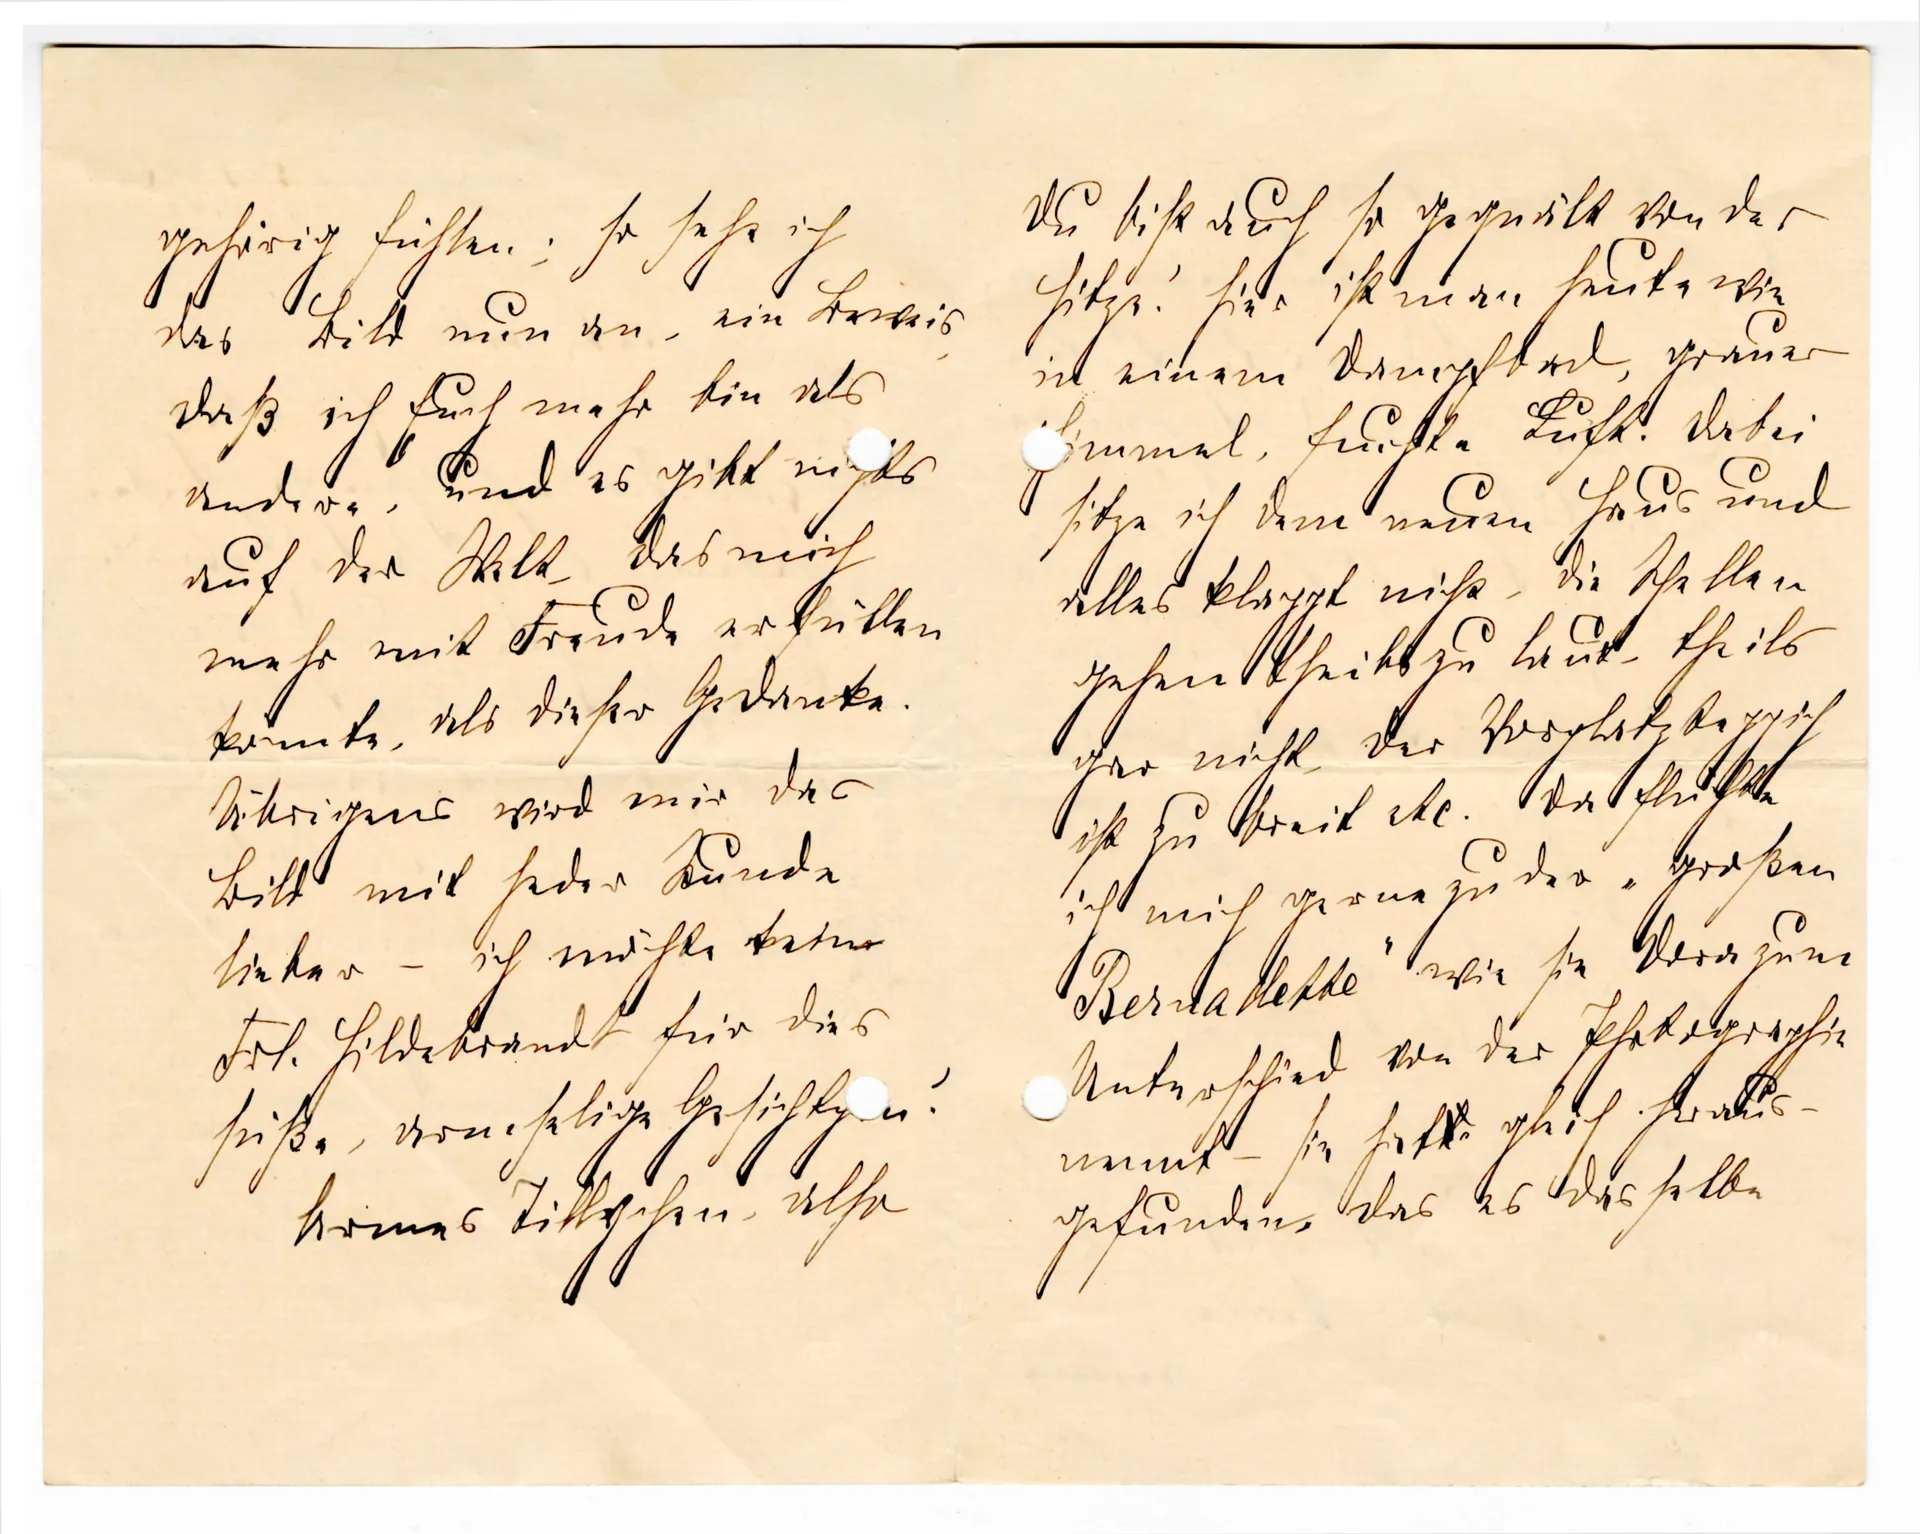 gehörig fühlen; so sehe ich
das Bild nun an, ein Beweis,
daß ich Euch mehr bin als
andere, und es gibt nichts
auf der Welt, das mich
mehr mit Freude erfüllen
könnte, als dieser Gedanke.
Übrigens wird mir das
Bild mit jeder Stunde
lieber – ich möchte keine
Frl. Hildebrandt für dies
süße, armselige Gesichtchen!
Armes Tillychen, also
Du bist auch so gequält von der
Hitze! Hier ist man heute wie
in einem Dampfbad, grauer
Himmel, feuchte Luft. Dabei
sitze ich dem neuen Haus und
alles klappt nicht, die Schellen
gehen theils zu laut, theils
gar nicht, der Vorplatzteppich
ist zu breit etc. Da flüchte
ich mich gerne zu der „großen
Bernadette" wie sie Dora zum
Unterschied von der Photographie
nennt – sie hatte gleich heraus-
gefunden, das es dasselbe